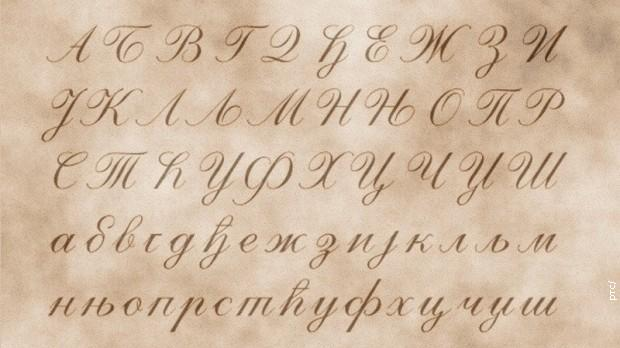 А Б В Г Д Ђ Е Ж З И
Ј К Л Љ М Н Њ О П Р
С Т Ћ У Ф Х Ц Ч Џ Ш
а б в г д ђ е ж з и ј к л љ м
н њ о п р с т ћ у ф х ц ч џ ш
ртс/